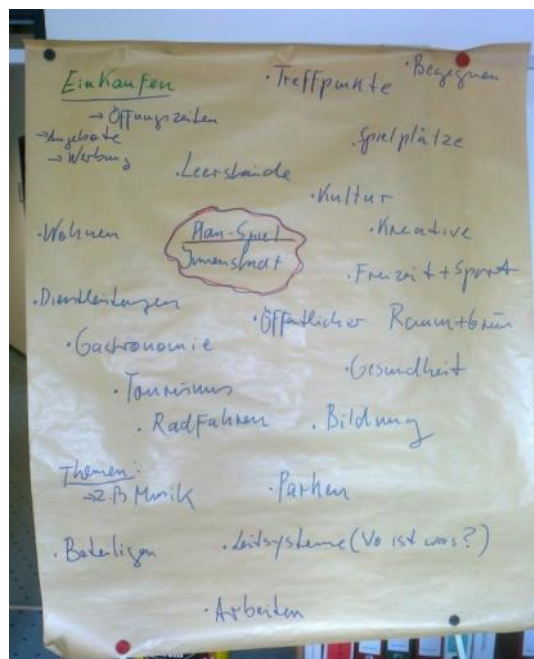 Einkaufen
→ Öffnungszeiten
→ Angebote
→ Werbung
· Treffpunkte
· Begegnen
· Spielplätze
· Leerstände
· Kultur
· Kreative
· Wohnen
Plan-Spiel
Innenstadt
· Freizeit + Sport
· Dienstleistungen
· Öffentlicher Raum + Grün
· Gastronomie
· Gesundheit
· Tourismus
· Radfahren
· Bildung
Themen:
→ z.B Musik
· Parken
· Beteiligen
· Leitsysteme (Wo ist was?)
· Arbeiten